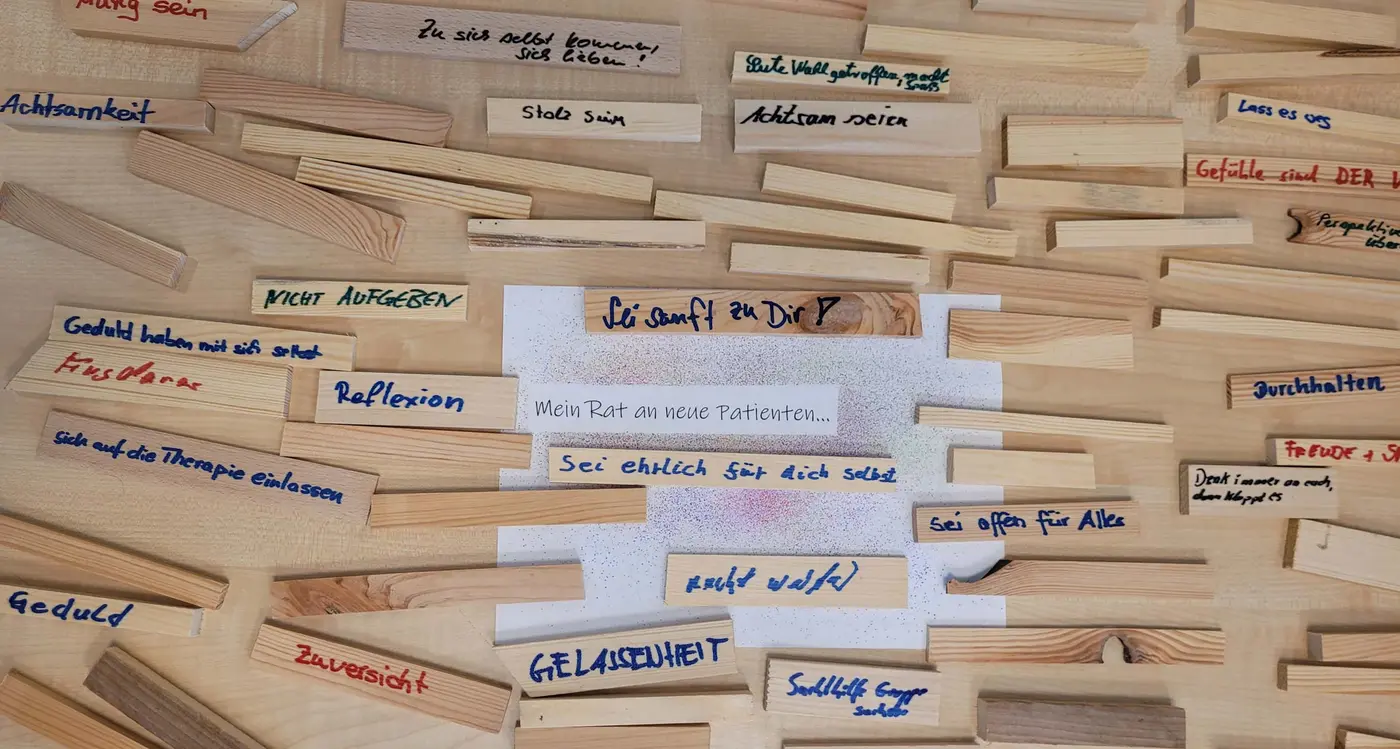 Mutig sein
Zu sich selbst kommen,
sich lieben!
Gute Wahl getroffen, macht
Spass
Achtsamkeit
Stolz sein
Achtsam seien
Lass es
Gefühle sind DER
NICHT AUFGEBEN
Sei sanft zu Dir!
Geduld haben mit sich selbst
Reflexion
Mein Rat an neue Patienten...
Durchhalten
sich auf die Therapie einlassen
Sei ehrlich für dich selbst
FREUDE +
Denk immer an euch,
dann klappt es
Sei offen für Alles
macht weiter
Geduld
Zuversicht
GELASSENHEIT
Gruppe